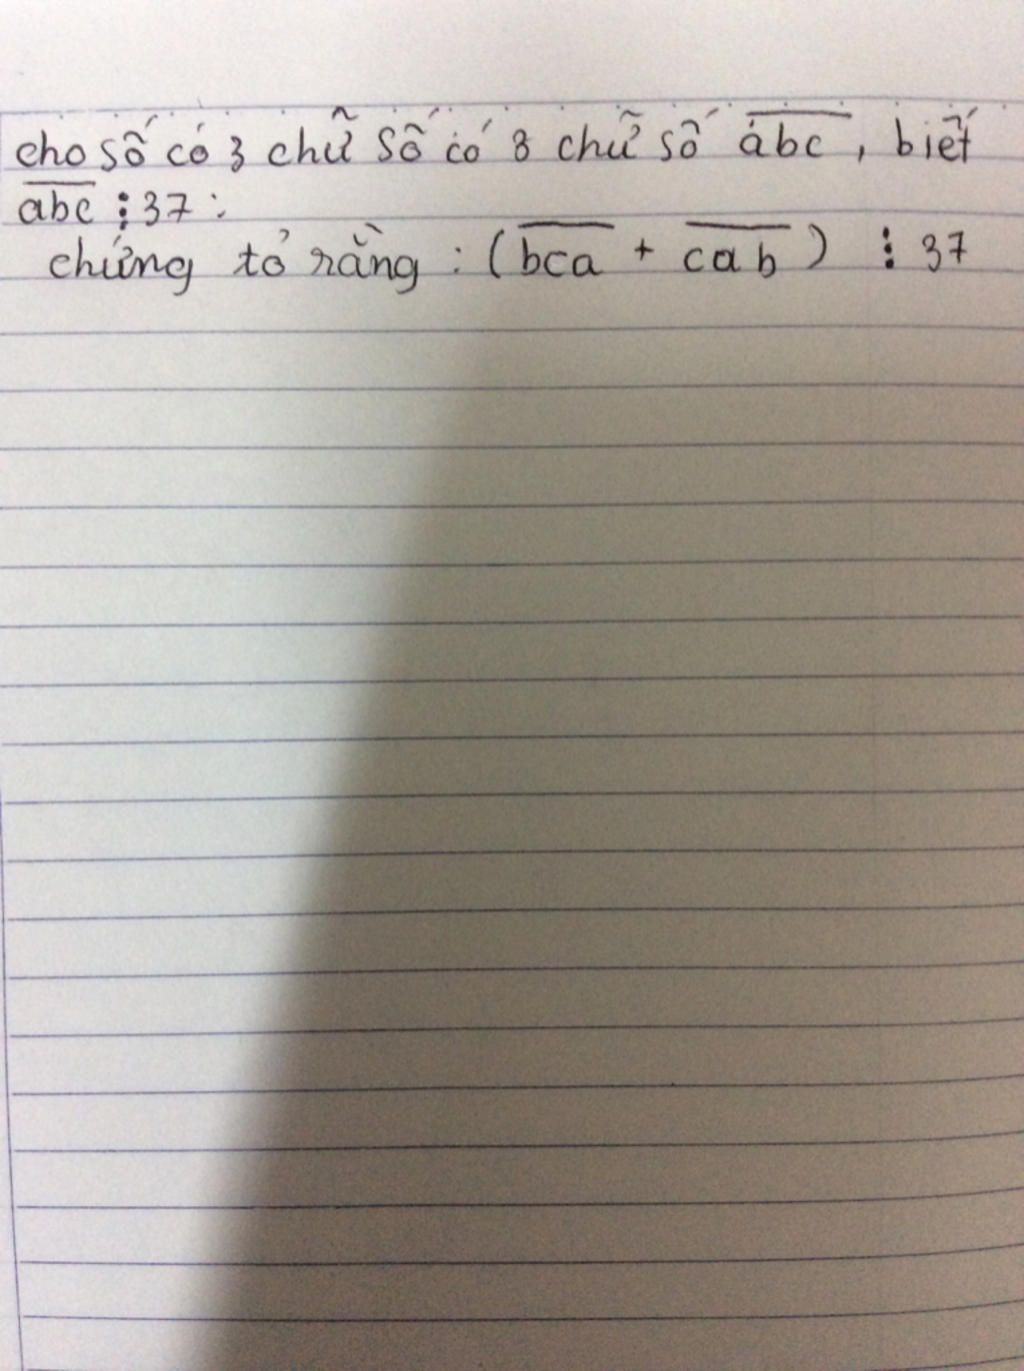 cho số có 3 chữ số có 3 chữ số abc, biết
abc ⋮ 37 :
chứng tỏ rằng : (bca + cab) ⋮ 37